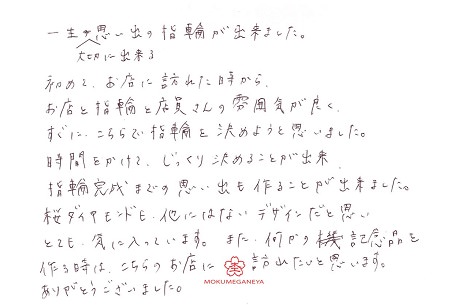 一生の思い出の指輪が出来ました。
大切に出来る
初めて、お店に訪れた時から、
お店と指輪と店員さんの雰囲気が良く、
すぐに、こちらで指輪を決めようと思いました。
時間をかけて、じっくり決めることが出来、
指輪完成までの思い出も作ることが出来ました。
桜ダイヤモンドも、他にはないデザインだと思い
とても、気に入っています。また、何かの記念品を
作る時は、こちらのお店に訪れたいと思います。
ありがとうございました。
MOKUMEGANEYA